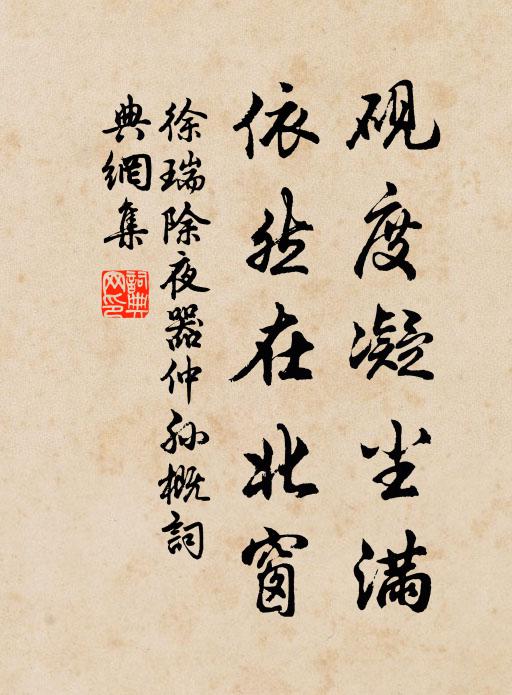 砚度凝尘满
依然在北窗
徐瑞除夜器仲孙概詞
典網集
詞典网印